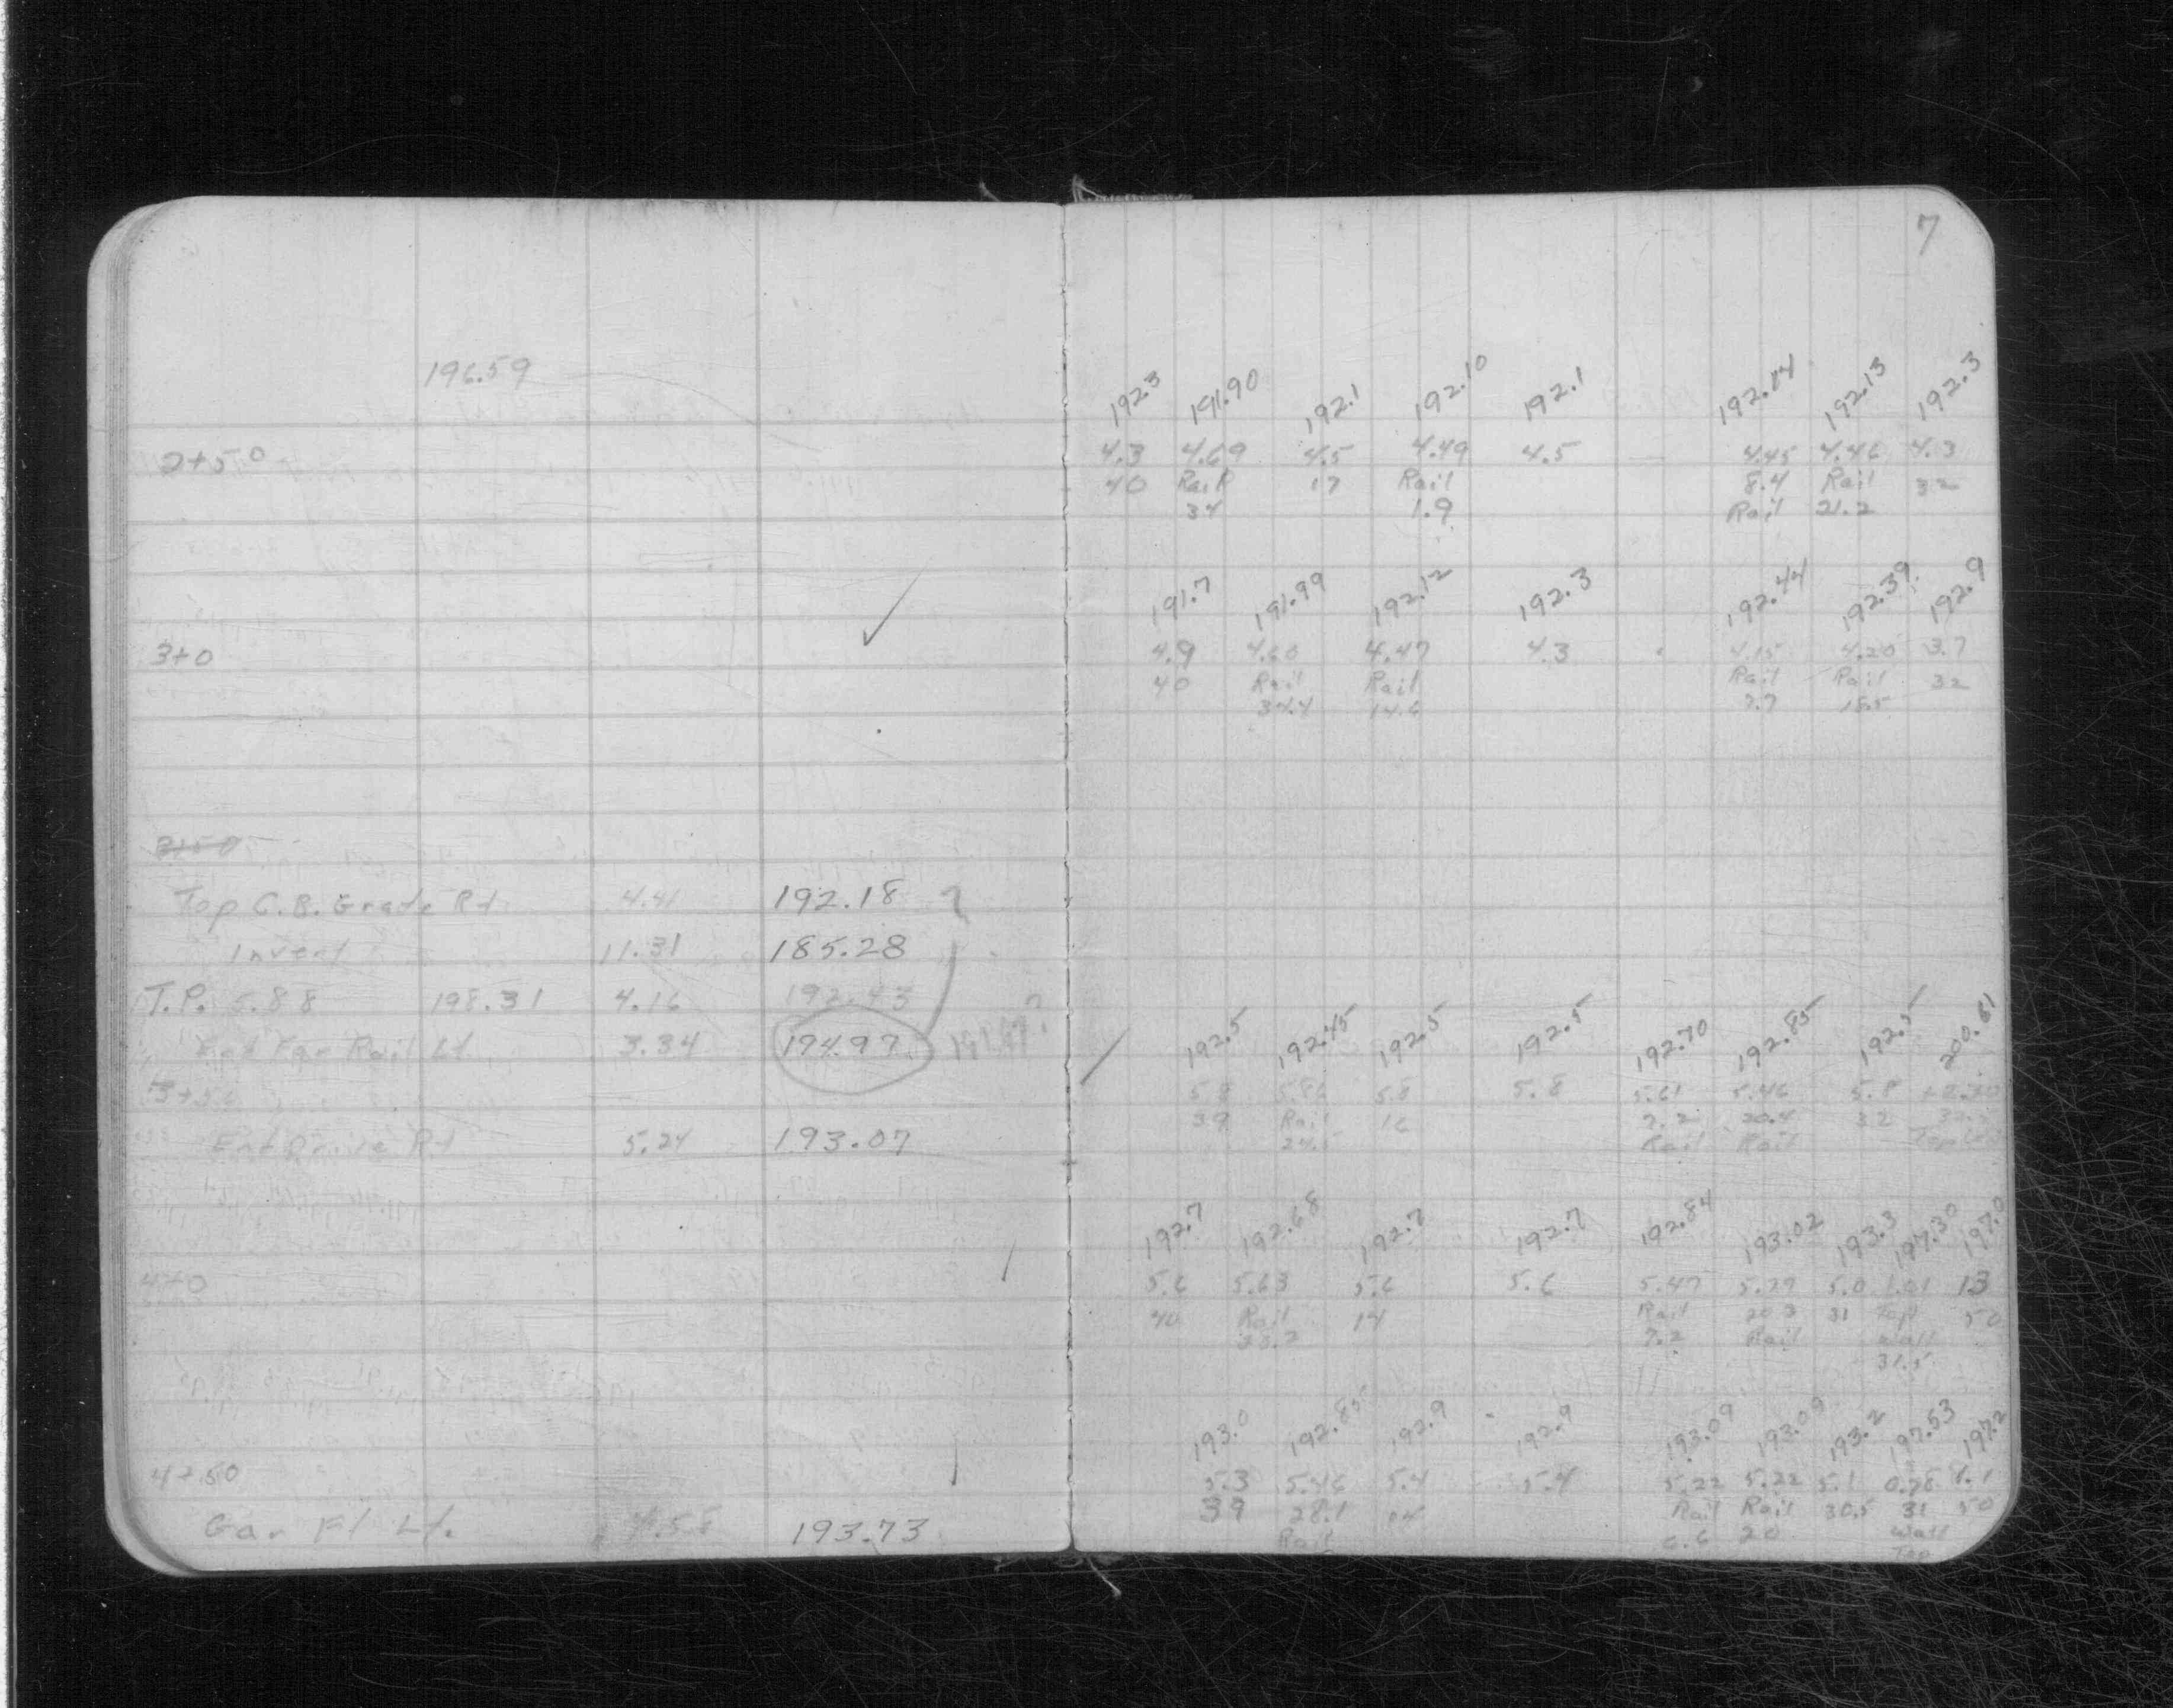 7
196.59
192.3 191.90 192.1 192.10 192.1 192.14 192.13 192.3
2+50 4.3 4.69 4.5 4.49 4.5 4.45 4.46 4.3
40 Rail 17 Rail 8.4 Rail 32
34 1.9 Rail 21.2
191.7 191.99 192.12 192.3 192.44 192.39 192.9
3+0 4.9 4.60 4.47 4.3 4.15 4.20 3.7
40 Rail Rail Rail Rail 32
34.4 14.6 7.7 18.5
3+50
Top C.B. Grate Rt 4.41 192.18 ?
Invert 11.31 185.28
T.P. 5.88 198.31 4.16 192.43 ?
Rail Lt. 3.34 194.97
192.5 192.45 192.5 192.5 192.70 192.85 192.5 200.61
3+50 5.8 5.86 5.8 5.8 5.61 5.46 5.8
39 Rail 16 7.2 20.4 32
Rail Rail Top
Ent Drive Rt 5.24 193.07
192.7 192.68 192.7 192.7 192.84 193.02 193.3 197.30 197.0
4+0 5.6 5.63 5.6 5.6 5.47 5.29 5.0 1.01 13
40 Rail 14 Rail 20.3 31 Top 50
7.2 Rail Wall
31.5
193.0 192.85 192.9 192.9 193.09 193.09 193.2 197.53 197.2
4+50 5.3 5.46 5.4 5.4 5.22 5.22 5.1 0.78 1.1
39 28.1 14 Rail Rail 30.5 31 50
Rail 6.6 20 Wall
Top
Gar Fl Lt. 4.58 193.73